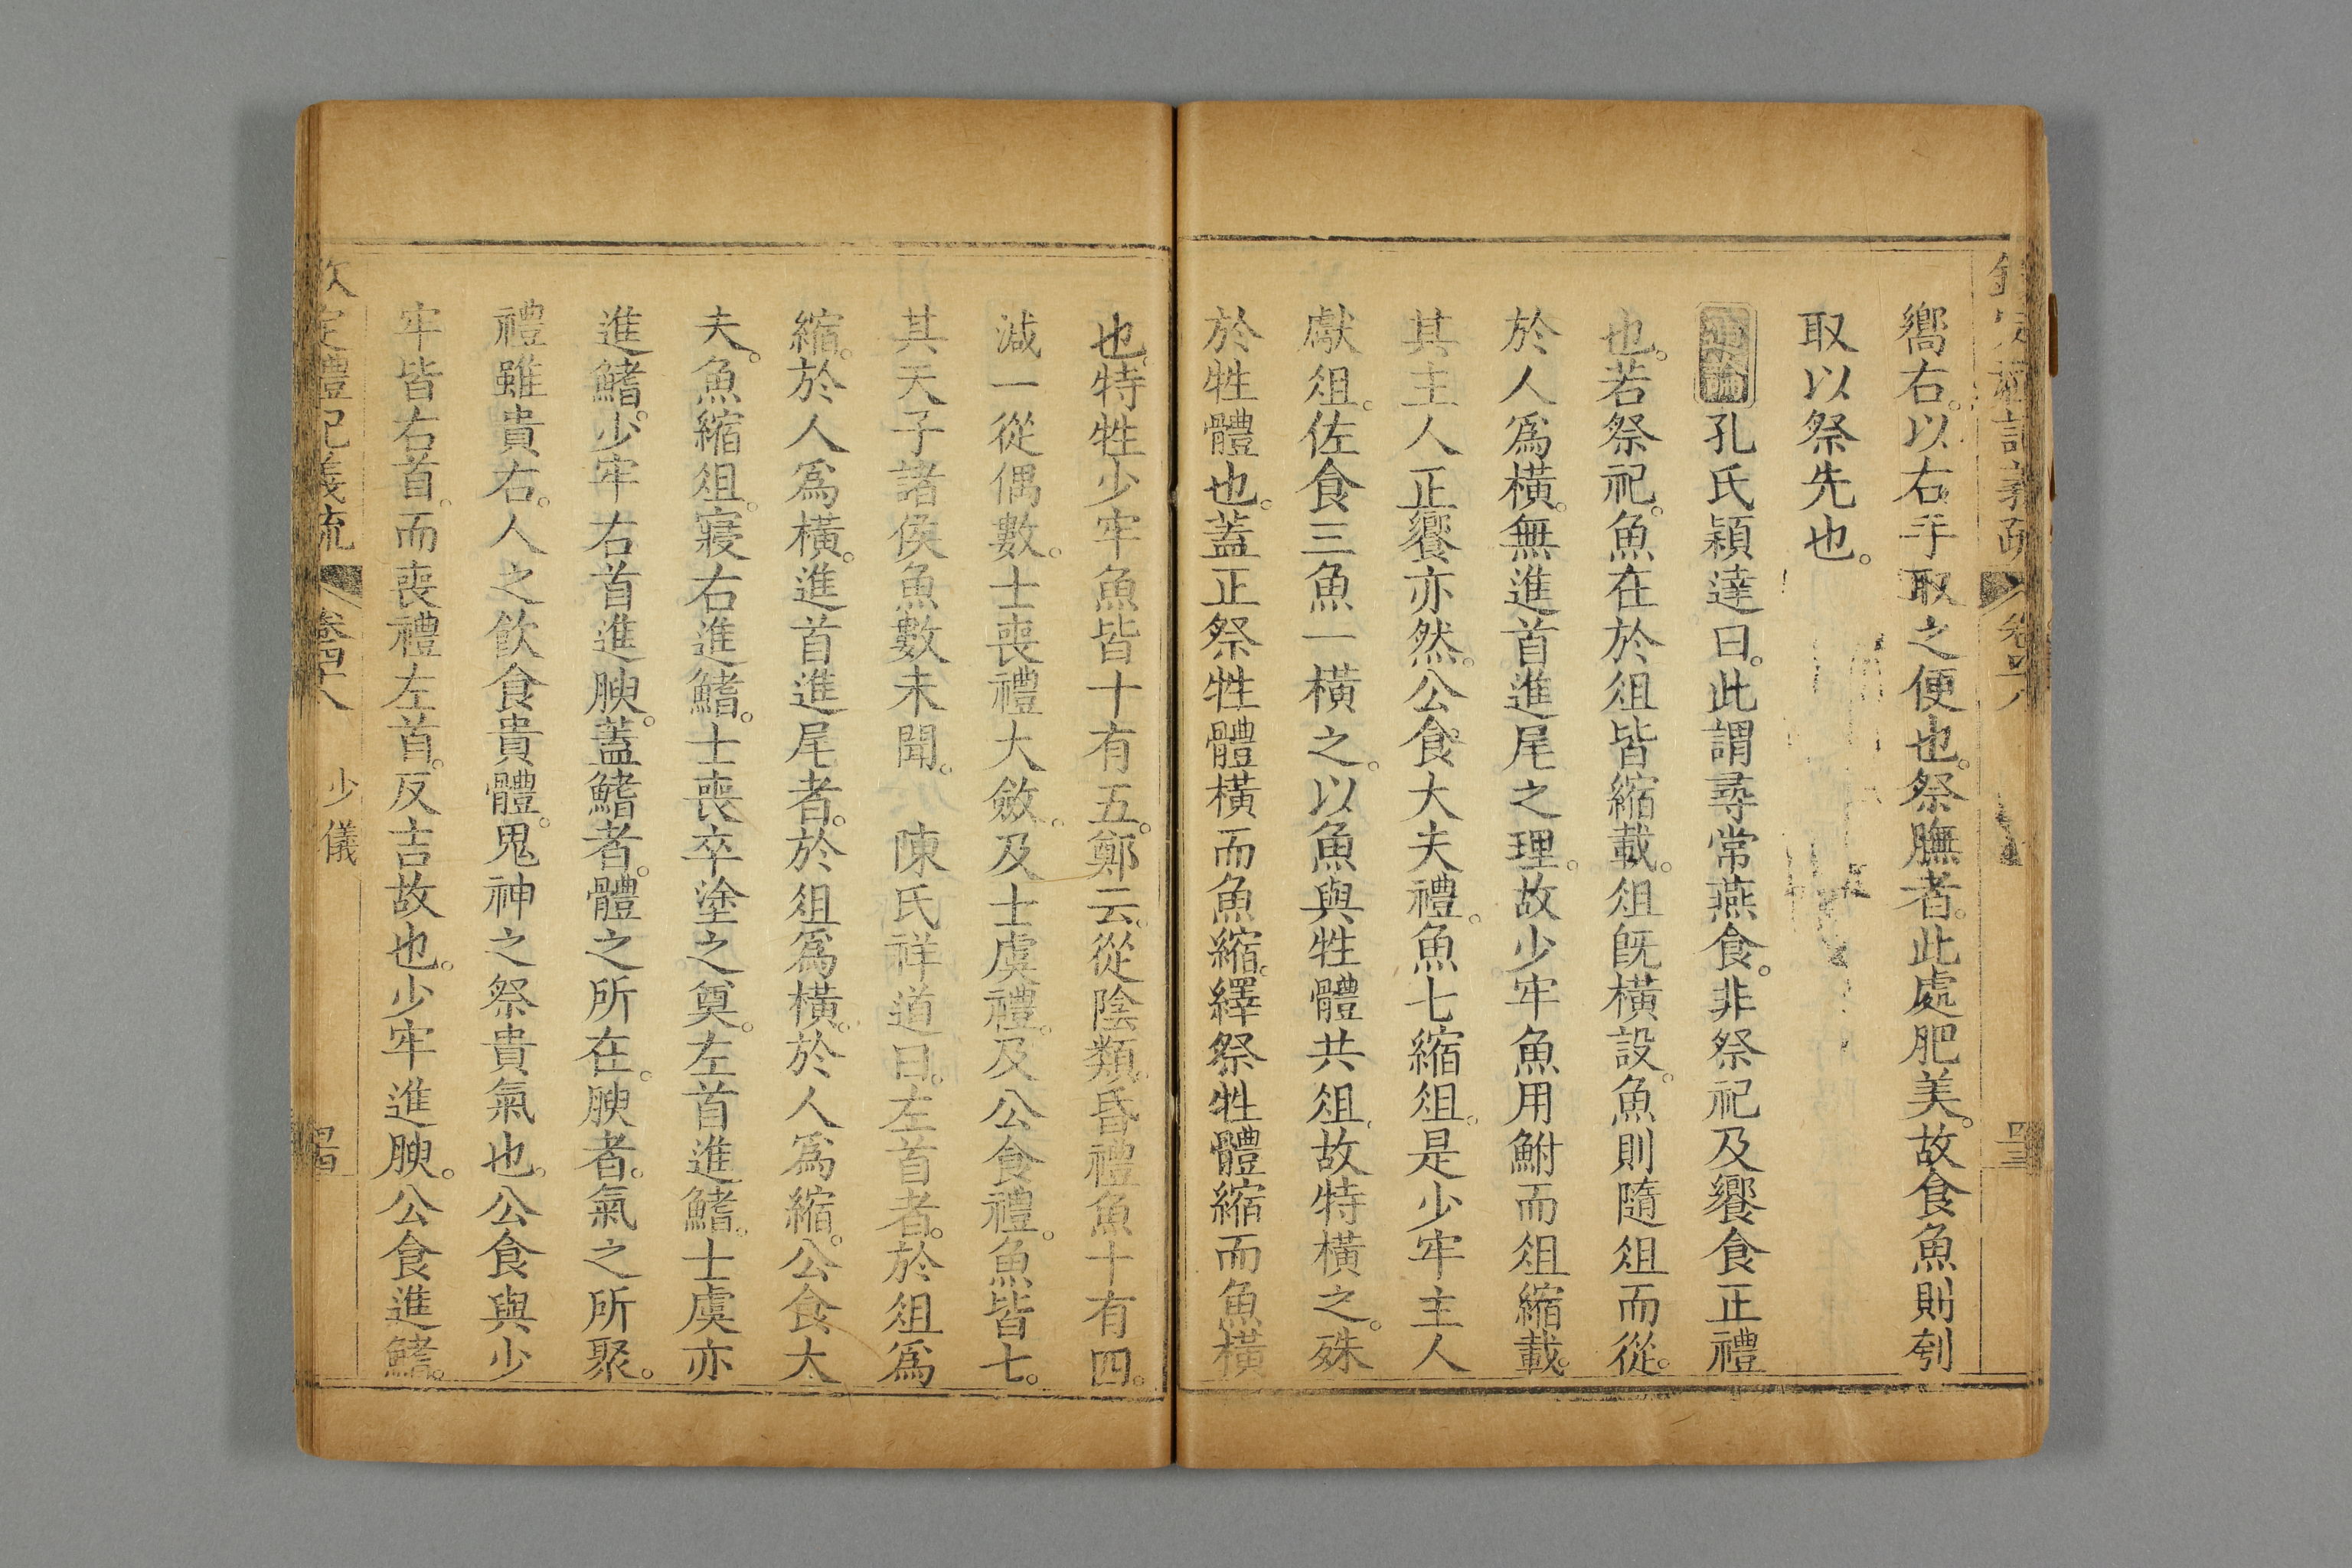 欽定禮記義疏 卷四十八
嚮右。以右手取之便也。祭膴者。此處肥美。故食魚則刳
取以祭先也。
通論孔氏穎達曰。此謂尋常燕食。非祭祀及饗食正禮
也。若祭祀。魚在於俎皆縮載。俎既橫設。魚則隨俎而從。
於人爲橫。無進首進尾之理。故少牢魚用鮒而俎縮載。
其主人正饗亦然。公食大夫禮。魚七縮俎。是少牢主人
獻俎。佐食三魚一橫之。以魚與牲體共俎。故特橫之。殊
於牲體也。蓋正祭牲體橫而魚縮。繹祭牲體縮而魚橫
也。特牲少牢魚皆十有五。鄭云。從陰類。昏禮魚十有四。
減一從偶數。士喪禮大斂。及士虞禮。及公食禮。魚皆七。
其天子諸侯魚數未聞。 陳氏祥道曰。左首者。於俎爲
縮。於人爲橫。進首進尾者。於俎爲橫。於人爲縮。公食大
夫。魚縮俎。寢右進鰭。士喪卒塗之奠。左首進鰭。士虞亦
進鰭。少牢右首進腴。蓋鰭者。體之所在。腴者。氣之所聚。
禮雖貴右。人之飲食貴體。鬼神之祭貴氣也。公食與少
牢皆右首。而喪禮左首。反吉故也。少牢進腴。公食進鰭。
欽定禮記義疏 卷四十八 少儀